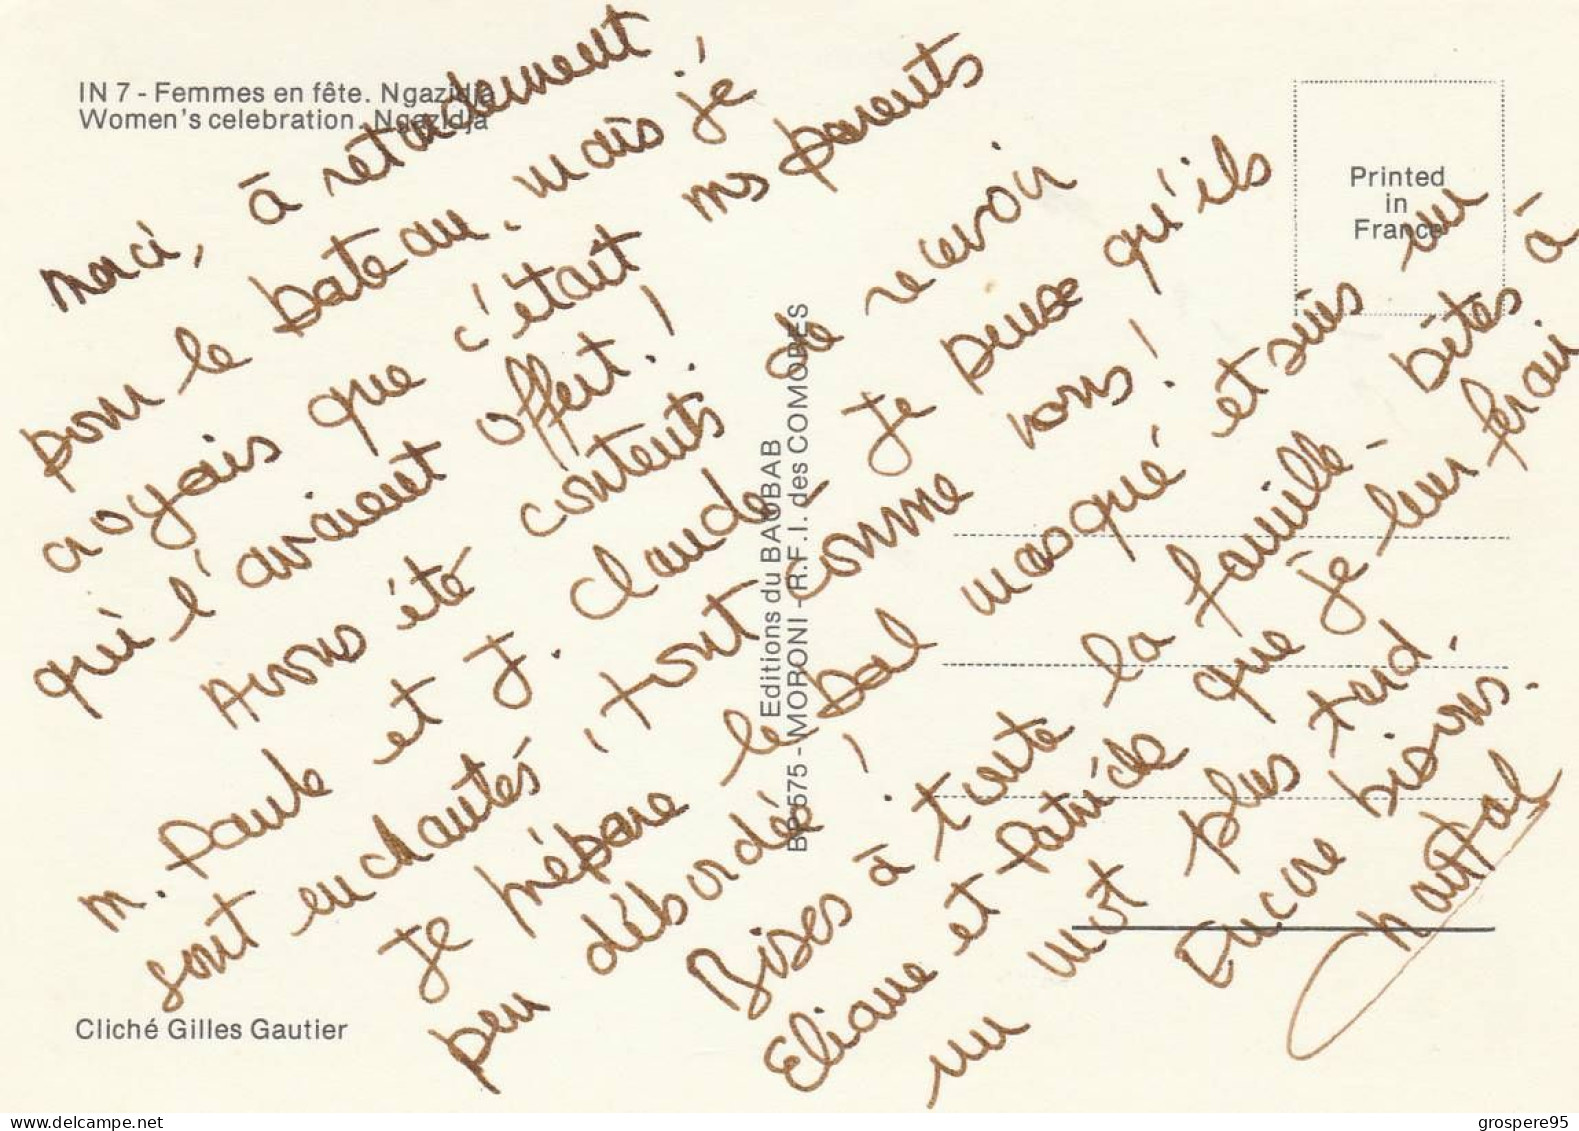 IN 7 - Femmes en fête. Ngazidja
Women's celebration. Ngazidja
Printed
in
France
Merci, à retardement
pour le bateau. mais je
croyais que c'était mes parents
qui l'avaient offert. !
Avons été contents de recevoir
M. Paule et J. Claude. Je pense qu'ils
sont enchantés, tout comme vous !
Je prépare le bal masqué et suis un
peu débordée !
Bises à toute la famille - bêtes à
Eliane et Patrick que je leur ferai
un mot plus tard.
Encore bisous.
Chantal
Editions du BAOBAB
BP 575 - MORONI - R.F.I. des COMORES
Cliché Gilles Gautier
www.delcampe.net
grospere95